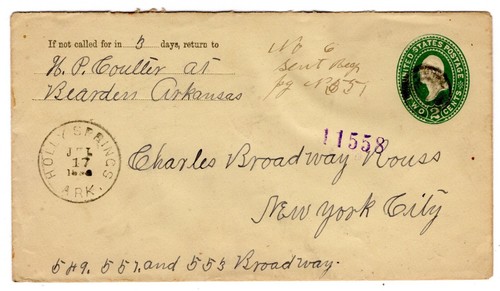 If not called for in 3 days, return to
H. P. Coulter at
Bearden Arkansas
No 6
Sent
UNITED STATES POSTAGE
TWO 2 CENTS
HOLLY SPRINGS
JUL
17
ARK.
11558
Charles Broadway Rouss
New York City
549. 551. and 553 Broadway.